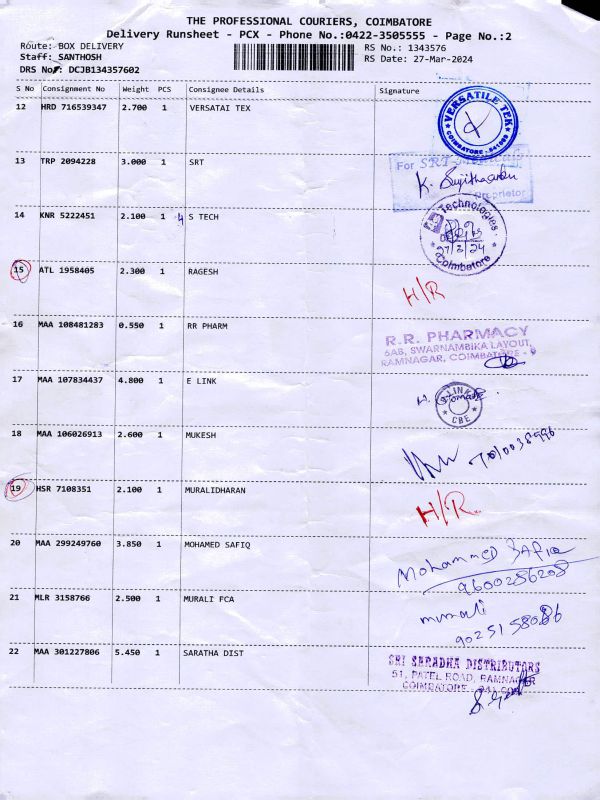 THE PROFESSIONAL COURIERS, COIMBATORE
Delivery Runsheet - PCX - Phone No.:0422-3505555 - Page No.:2
Route: BOX DELIVERY RS No.: 1343576
Staff: SANTHOSH RS Date: 27-Mar-2024
DRS No: DCJB134357602
S No Consignment No Weight PCS Consignee Details Signature
12 HRD 716539347 2.700 1 VERSATAI TEX
VERSATILE TEK
COIMBATORE - 641009
13 TRP 2094228 3.000 1 SRT
For SRT
Proprietor
14 KNR 5222451 2.100 1 S TECH
Technologies
27/3/24
Coimbatore
15 ATL 1958405 2.300 1 RAGESH H/R
16 MAA 108481283 0.550 1 RR PHARM
R.R. PHARMACY
6AB, SWARNAMBIKA LAYOUT,
RAMNAGAR, COIMBATORE - 9
17 MAA 107834437 4.800 1 E LINK
LINK
CBE
18 MAA 106026913 2.600 1 MUKESH
19 HSR 7108351 2.100 1 MURALIDHARAN H/R
20 MAA 299249760 3.850 1 MOHAMED SAFIQ
Mohammed Safiq
9600286208
21 MLR 3158766 2.500 1 MURALI FCA
murali
90251 58086
22 MAA 301227806 5.450 1 SARATHA DIST
SRI SARADHA DISTRIBUTORS
51, PATEL ROAD, RAMNAGAR
COIMBATORE - 641 009